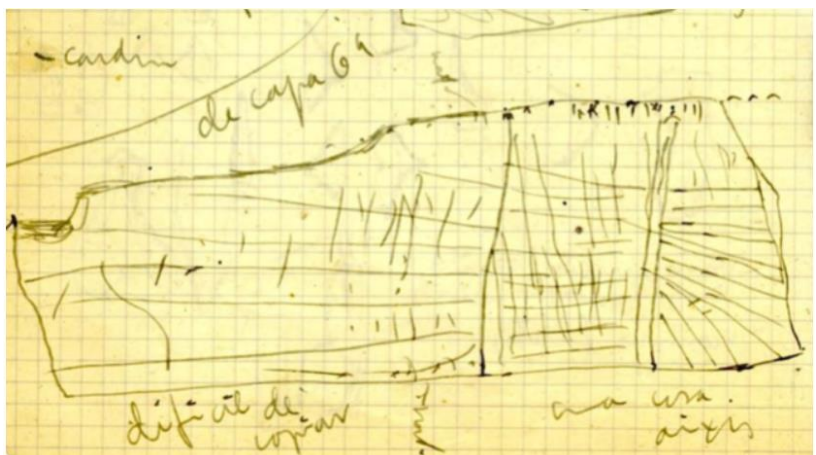 - cardin
de capa 6ª
difícil de
copiar
una cosa
aixís